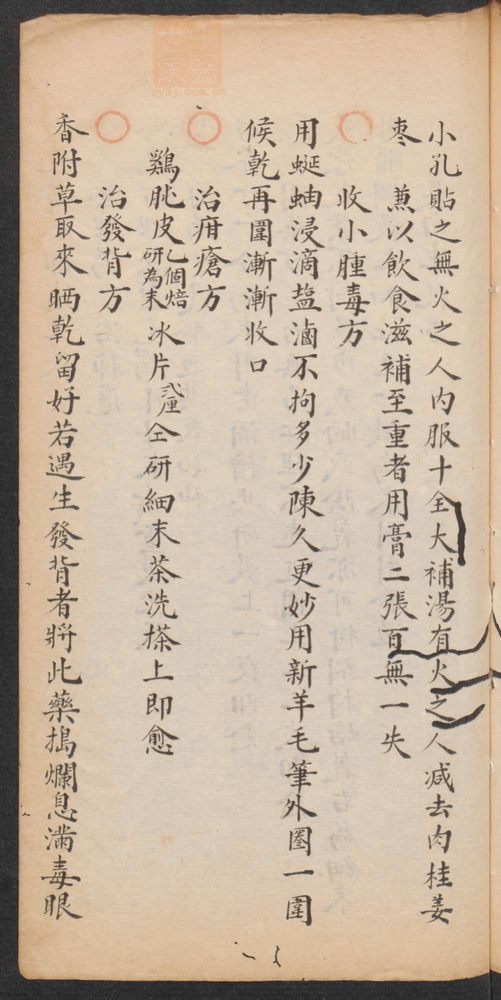 小孔貼之無火之人內服十全大補湯有火之人减去肉桂姜
枣　蒸以飲食滋補至重者用膏二張百無一失
收小腫毒方
用蜒蚰浸滴盐滷不拘多少陳久更妙用新羊毛筆外圈一圍
候乾再圍漸漸收口
治疳瘡方
鷄肫皮乙個焙研為末冰片弍厘仝研細末茶洗搽上即愈
治發背方
香附草取來晒乾留好若遇生發背者將此藥搗爛息滿毒眼